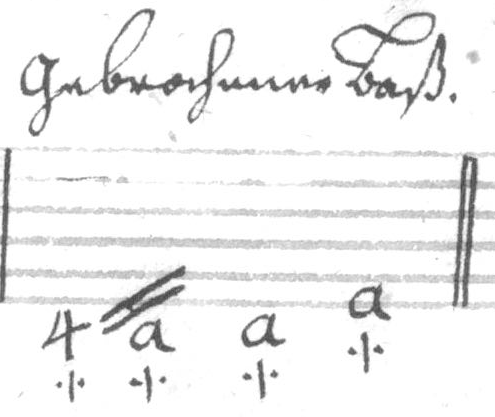 Gebrochener Baß.
4 a a a